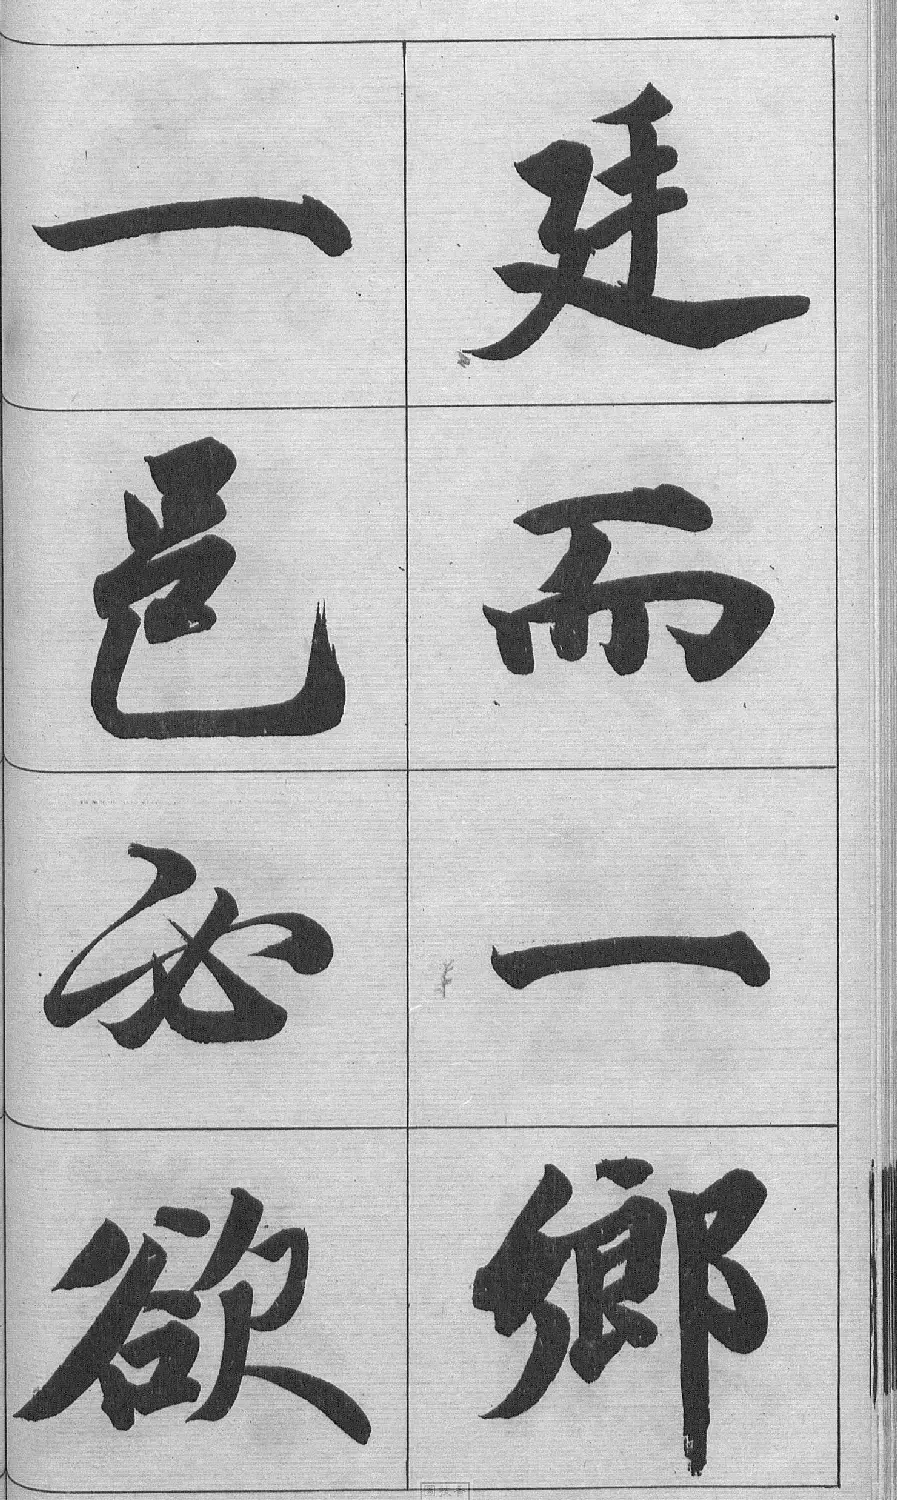 廷而一鄉
一邑必欲